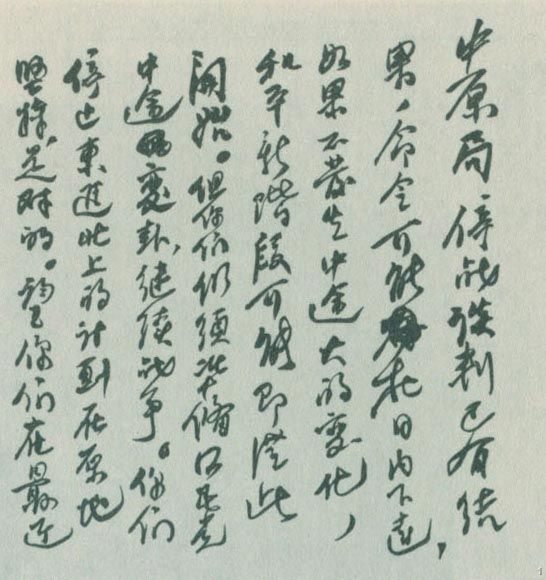 中原局 停战谈判已有结
果，命令可能在日内下达，
如果不发生中途大的变化，
和平新阶段可能即从此
开始。但你们仍须准备国民党
中途变卦，继续战争。你们
停止东进北上的计划在原地
坚持，是对的。望你们在最近